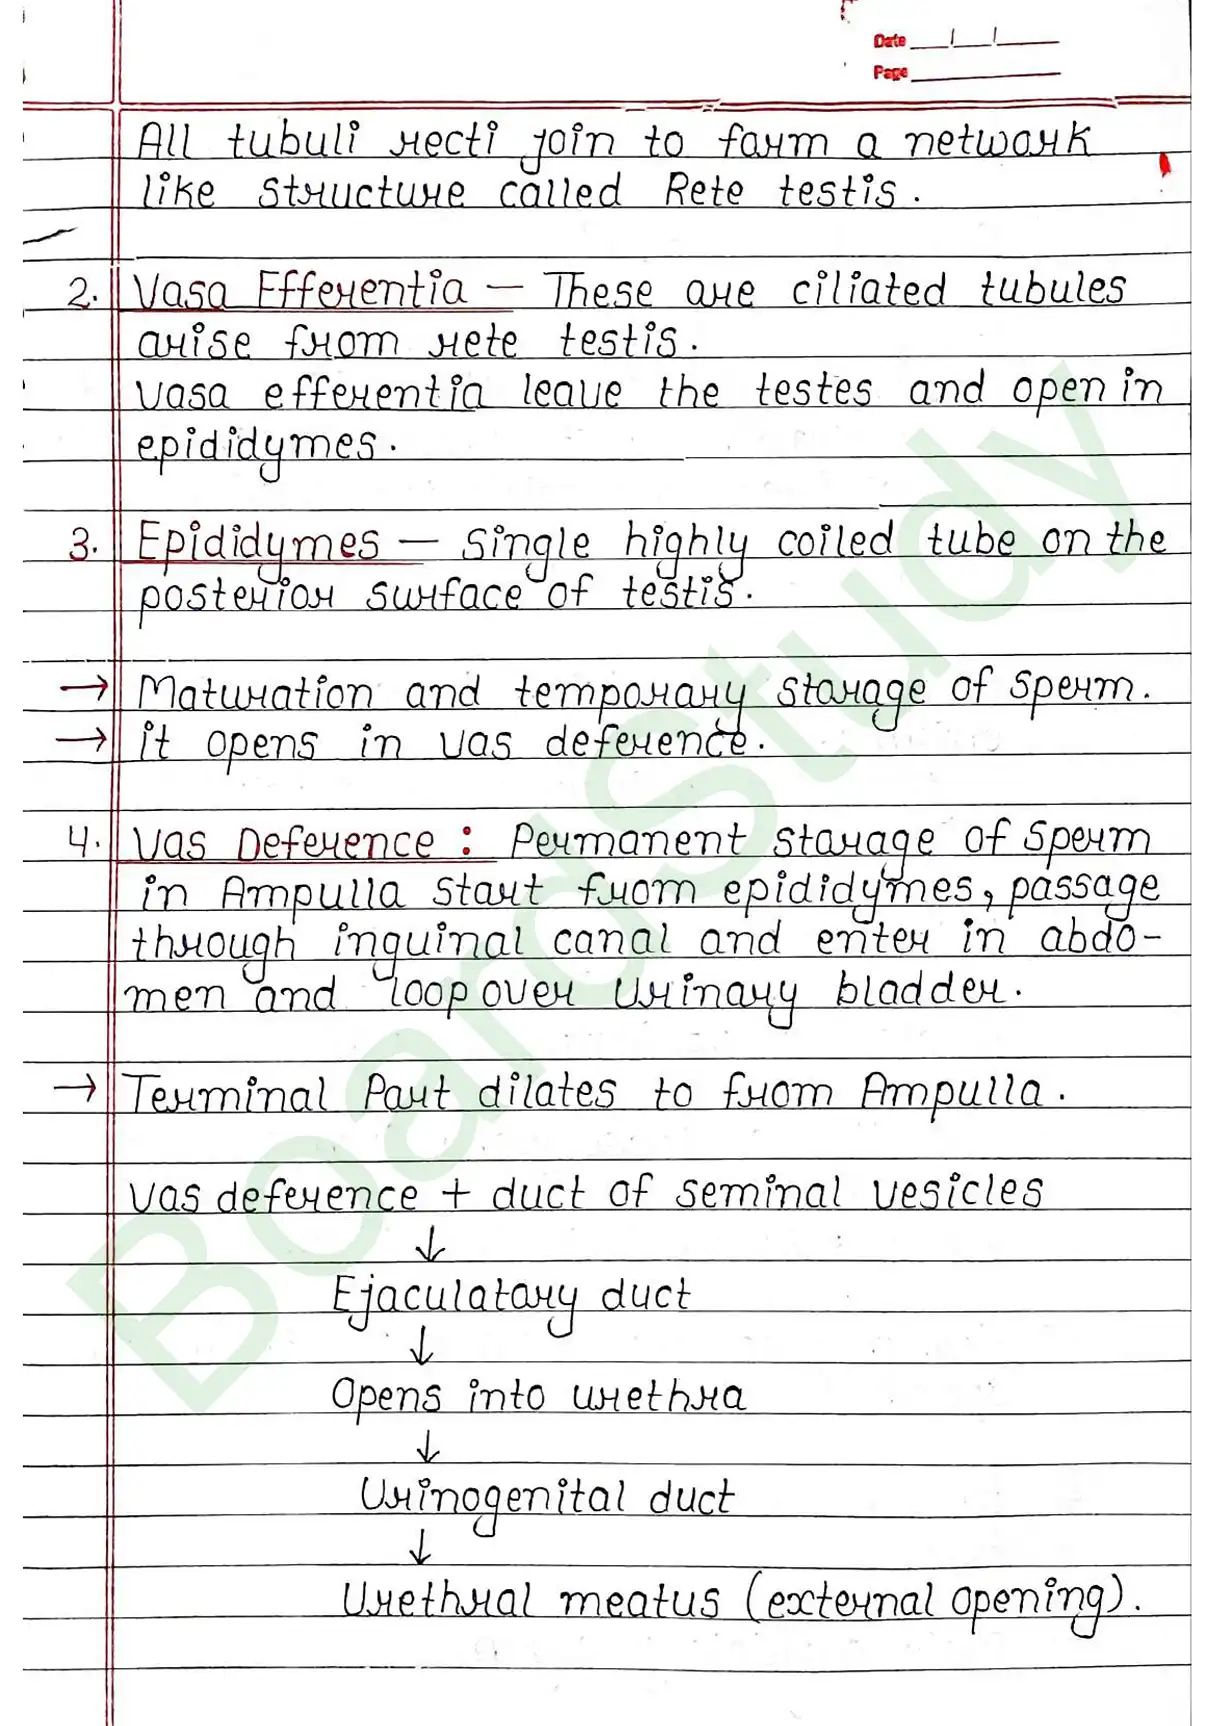 Date
Page
All tubuli recti join to form a network
like structure called Rete testis.
2. Vasa Efferentia — These are ciliated tubules
arise from rete testis.
Vasa efferentia leave the testes and open in
epididymes.
3. Epididymes — Single highly coiled tube on the
posterior surface of testis.
→ Maturation and temporary storage of sperm.
→ it opens in vas deference.
4. Vas Deference : Permanent storage of sperm
in Ampulla start from epididymes, passage
through inguinal canal and enter in abdo-
men and loop over urinary bladder.
→ Terminal Part dilates to from Ampulla.
Vas deference + duct of seminal vesicles
↓
Ejaculatary duct
↓
Opens into urethra
↓
Urinogenital duct
↓
Urethral meatus (external opening).
BoardStudy